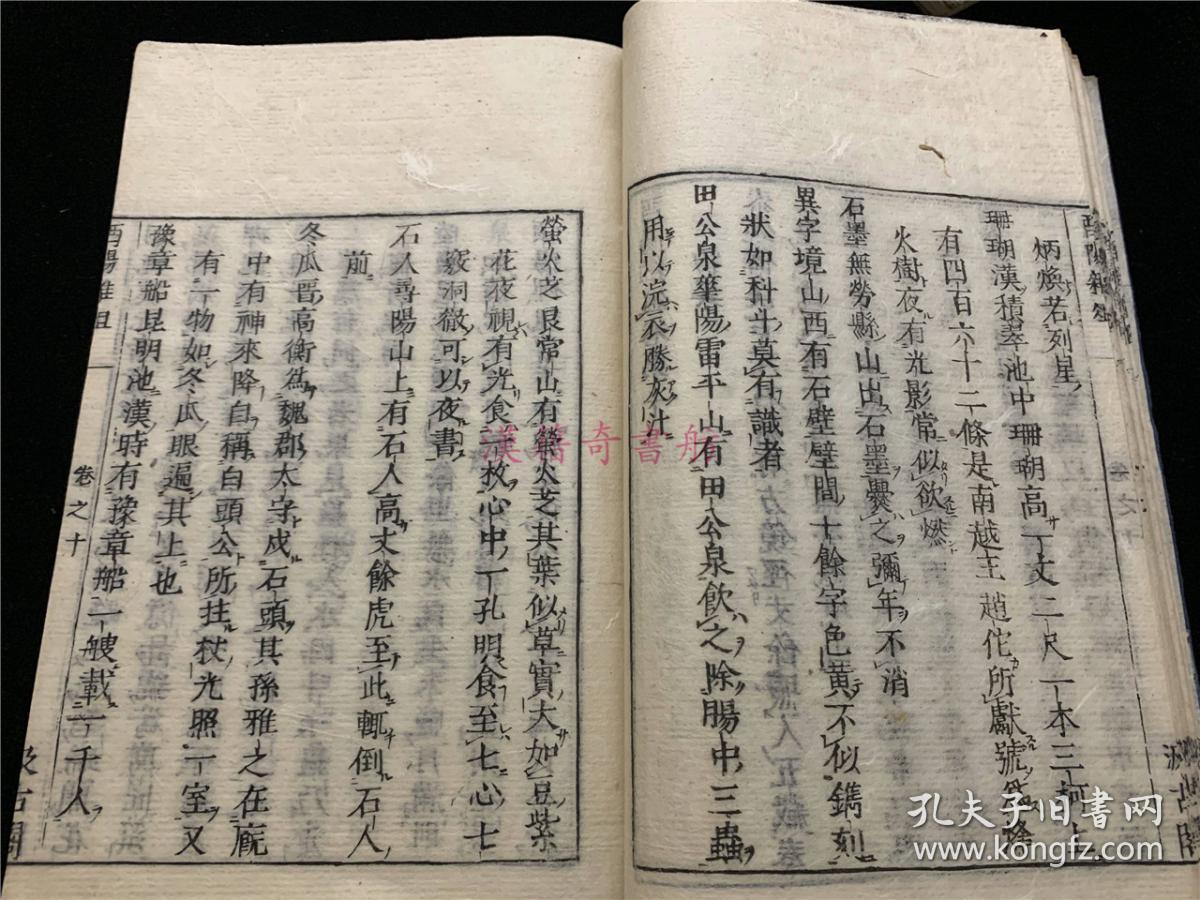 酉陽雜俎
炳煥若列星
珊瑚漢積翠池中珊瑚高一丈二尺一本三柯上
有四百六十二條是南越王趙佗所獻號爲
火樹夜有光影常似欲燃
石墨無勞縣山出石墨爨之彌年不消
異字境山西有石壁壁間十餘字色黃不似鐫刻
狀如科斗莫有識者
田公泉華陽雷平山有田公泉飲之除腸中三蟲
用以浣衣勝灰汁
螢火芝良常山有螢火芝其葉似草實大如豆紫
花夜視有光食一枚心中一孔明食至七心七
竅洞徹可以夜書
石人尋陽山上有石人高丈餘虎至此輒倒石人
前
冬瓜晉高衡爲魏郡太守戍石頭其孫雅之在廐
中有神來降自稱白頭公所拄杖光照一室又
有一物如冬瓜眼遍其上也
豫章船昆明池漢時有豫章船一艘載一千人
酉陽雜俎
卷之十
汲古閣
漢籍奇書舫
孔夫子旧書网
kongfz.com